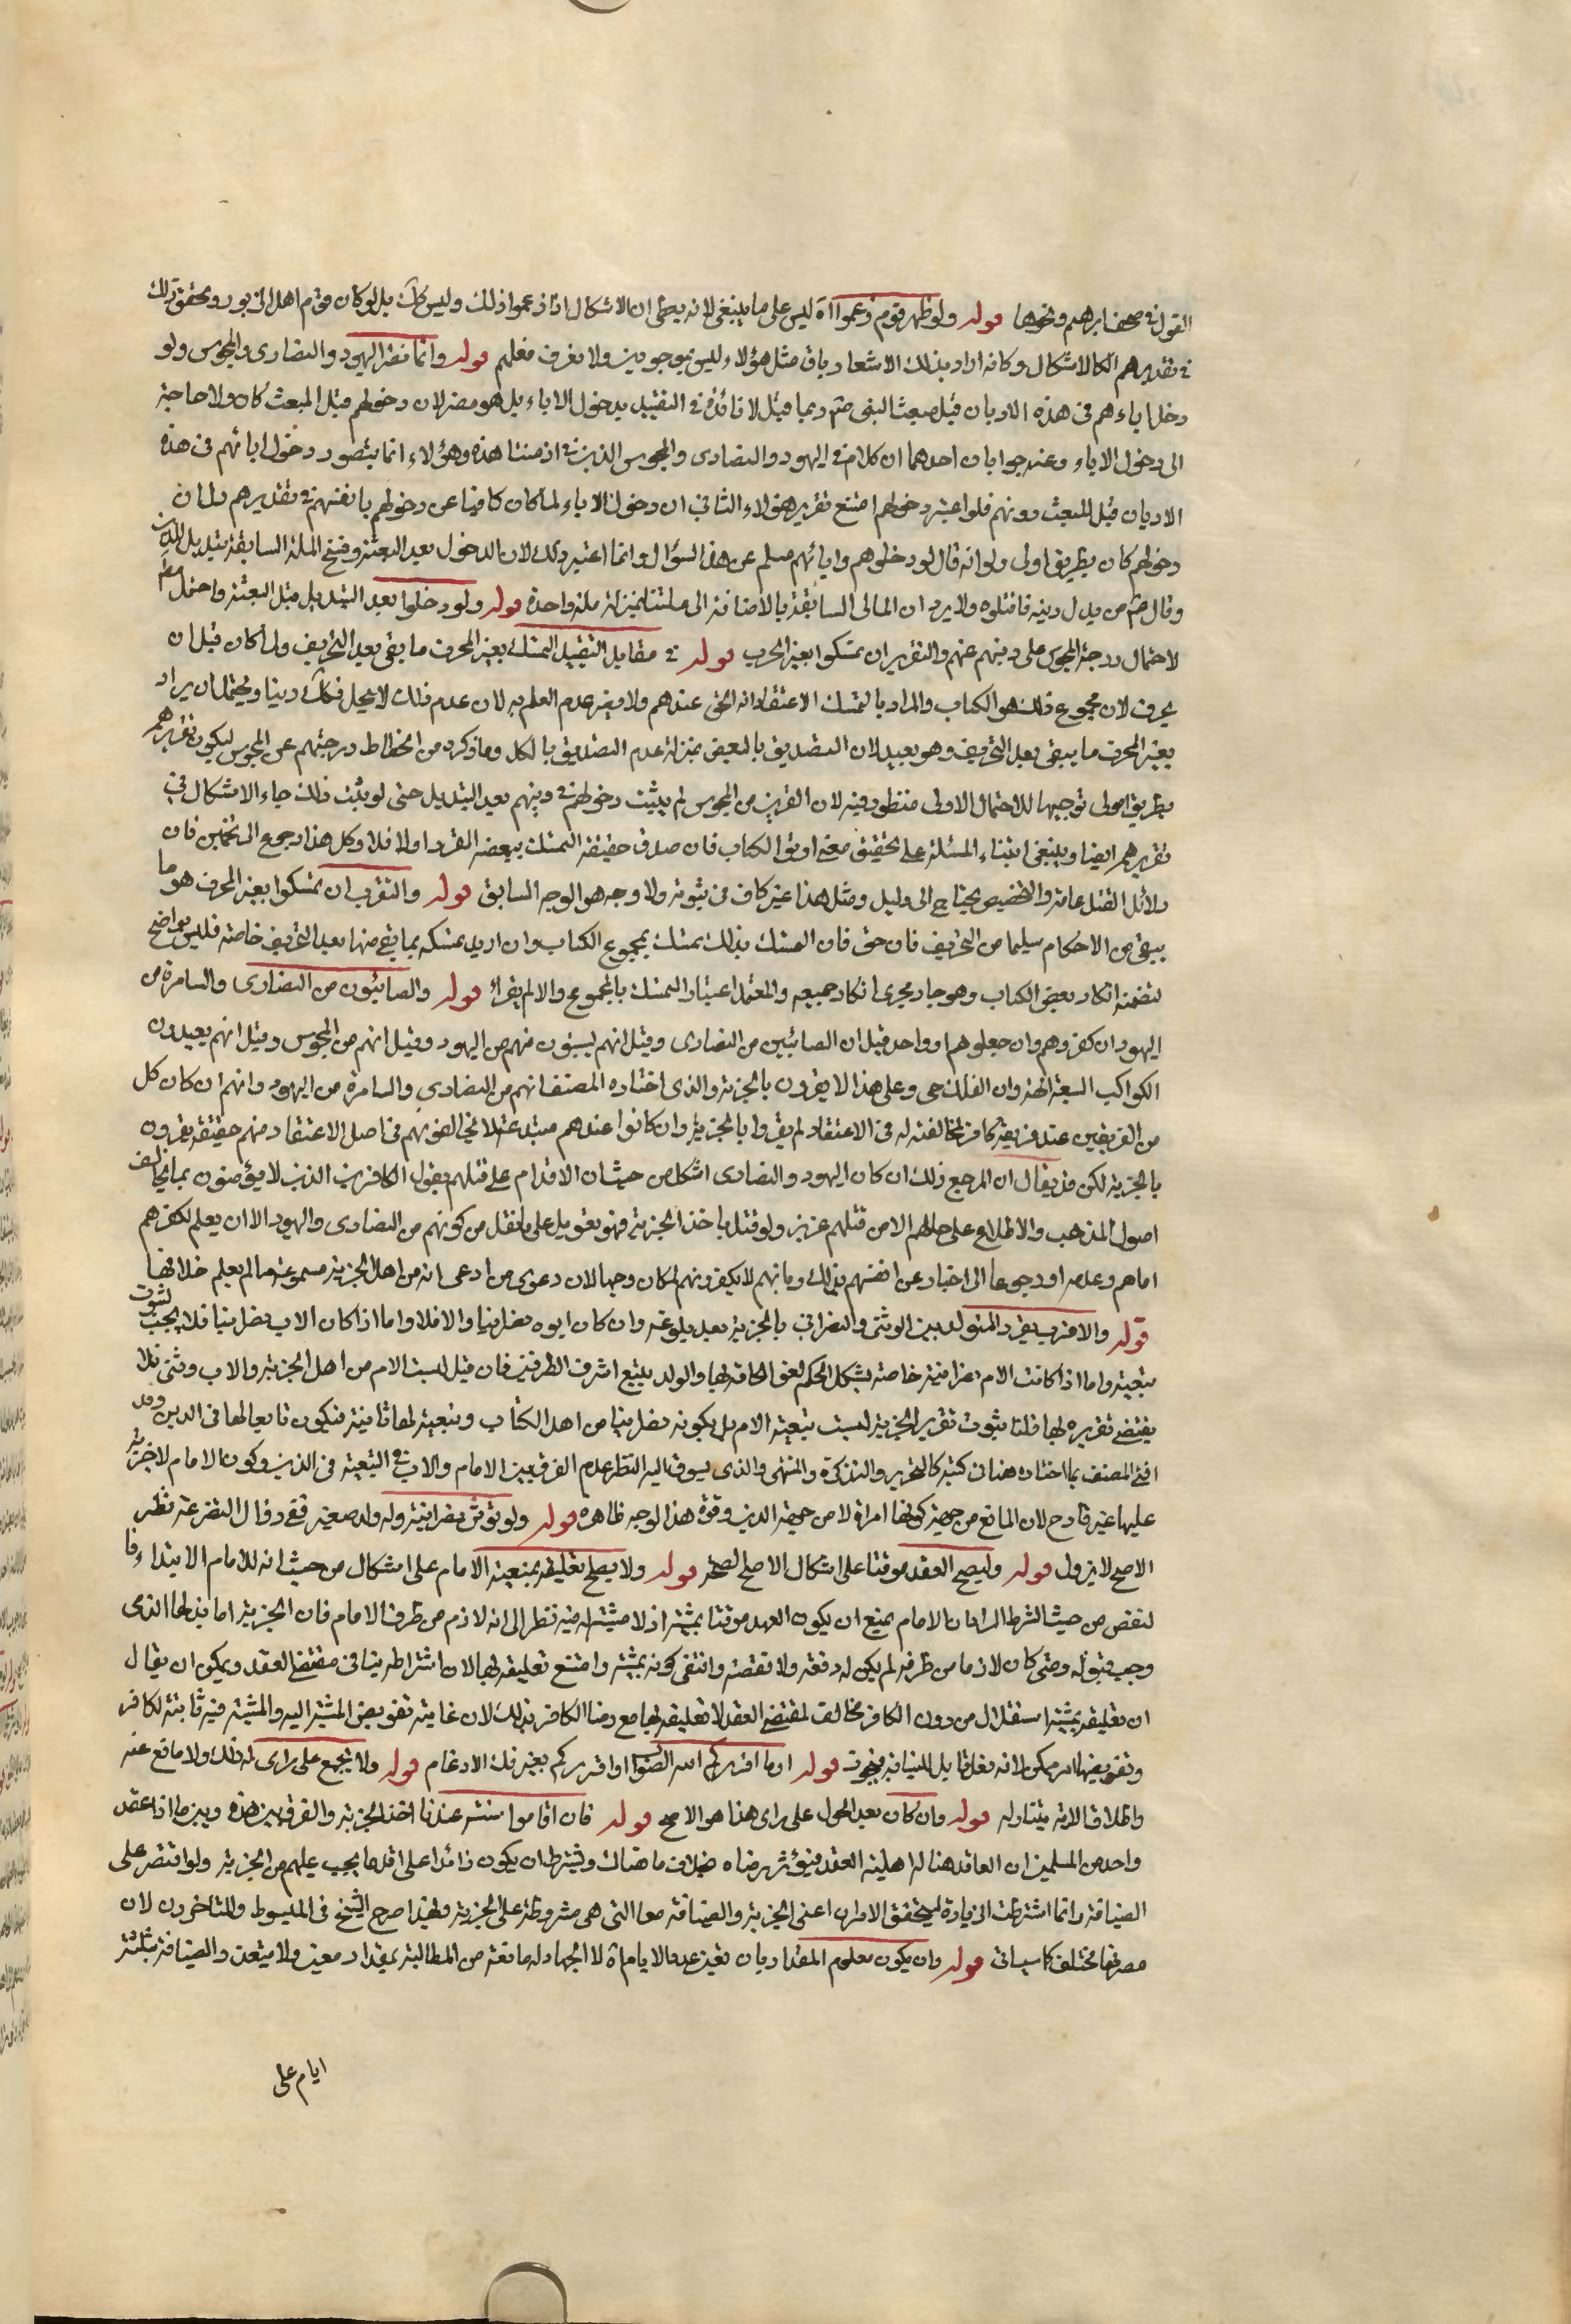 القول في صحف ابرهيم ونحوها قوله ولو ظهر قوم زعموا اه ليس على ما ينبغي لانه يعطى ان الاشكال اذا زعموا ذلك وليس كك بل لو كان قوم اهل الزبور وتحقق ذلك
في تقديرهم الكالاشكال وكانه اراد بذلك الاشعار بان مثل هؤلاء ليسو بموجودين ولا نعرف فعلهم قوله وانما نقر اليهود والنصارى والمجوس ولو
دخل اباءهم في هذه الاديان قبل مبعث النبي صم ربما قيل لا فائدة في التقييد بدخول الاباء بل هو مضر لان دخولهم قبل المبعث كان ولا حاجة
الى دخول الاباء وعنه جوابان احدهما ان كلامه في اليهود والنصارى والمجوس الذين في ازمنتنا هذه وهؤلاء انما يتصور دخول ابائهم في هذه
الاديان قبل المبعث دونهم فلو اعتبر دخولهم امتنع تقرير هؤلاء الثاني ان دخول الاباء لما كان كافيا عن دخولهم بانفسهم في تقريرهم دل ان
دخولهم كان بطريق اولى ولو انه قال لو دخلوا هم وابائهم سلم عن هذا السؤال وانما اعتبر ذلك لان الدخول بعد البعثة وفسخ الملة السابقة تبديل للدين
وقال صم من بدل دينه فاقتلوه ولا يرد ان المالى السابقة بالاضافة الى ملتنا بمنزلة ملة واحدة قوله ولو دخلوا بعد التبديل قبل البعثة واحتمل
لاحتمال درجة المجوس على دينهم عنهم والتقرير ان تمسكوا بغير المحرف قوله في مقابل التقييد التمسك بغير المحرف ما بقي بعد التحريف ولما كان قبل ان
يحرف لان مجموع ذلك هو الكتاب والمراد بالتمسك الاعتقاد انه الحق عندهم ولا يضر عدم العلم به لان عدم ذلك لا يحل فكك دينا ويحتمل ان يراد
بغير المحرف ما يبقى بعد التحريف وهو بعيد لان التصديق بالبعض بمنزلة عدم التصديق بالكل وما ذكره من انحطاط درجتهم عن المجوس ليكون تقريرهم
بطريق اولى توجيها للاحتمال الاول منظور فيه لان القرين من المجوس لم يثبت دخولهم في دينهم بعد التبديل حتى لو ثبت ذلك جاء الاشكال في
تقريرهم ايضا وينبغي ابتناء المسئلة على تحقيق معنى اوتوا الكتاب فان صدق حقيقة التمسك ببعضه اقروا والا فلا وكل هذا رجوع الى تخمين فان
دلائل القتل عامة والتخصيص يحتاج الى دليل ومثل هذا غير كاف في ثبوته ولا وجه هو الوجه السابق قوله والتقرب ان تمسكوا بغير المحرف هو ما
يبقى من الاحكام سليما من التحريف فان حق فان المتمسك بذلك تمسك بمجموع الكتاب وان اريد تمسكه بما بقي منها بعد التحريف خاصة فليس بواضح
لتضمنه انكار بعض الكتاب وهو جار مجرى انكار جميعه والمعتمد اعتبار التمسك بالمجموع والا لم يقرا قوله والصابئون من النصارى والسامرة من
اليهود ان كفروهم وان جعلوهم او واحد قيل ان الصابئين من النصارى وقيل انهم يسبتون فهم من اليهود وقيل انهم من المجوس وقيل انهم يعبدون
الكواكب السبعة الهة وان الفلك حي وعلى هذا لا يقرون بالجزية والذي اختاره المصنف انهم من النصارى والسامرة من اليهود وانهم ان كان كل
من الفريقين عند فريقه كافر لمخالفته له في الاعتقاد لم يقروا بالجزية وان كانوا عندهم مبتدعة لا يخالفونهم في اصل الاعتقاد فهم حقيقة يقرون
بالجزية لكن قد يقال ان المرجع ذلك ان كان اليهود والنصارى اشكل من حيث ان الاقدام على قتلهم بقول الكافرين الذين لا يؤمنون بما يخالف
اصول المذهب والاطلاع على حالهم الا من قتلهم عزيز ولو قيل باخذ الجزية فهو تعويل على ما نقل من كونهم من النصارى واليهود الا ان يعلم لكفرهم
اماهم وعدمه او رجوعا الى اخبار عن انفسهم بذلك وبانهم لا يكفرونهم لكان وجها لان دعوى من ادعى انه من اهل الجزية مسموعة ما لم يعلم خلافها
قوله والاقرب تقرير المتولد بين الوثني والنصراني بالجزية بعد بلوغه وان كان ابوه نصرانيا والا فلا واما اذا كان الاب نصرانيا فلا يجب لثبوت
تبعيته واما اذا كانت الام نصرانية خاصة يشكل الحكم لعن الحاقه بها والولد يتبع اشرف الطرفين فان قيل ليست الام من اهل الجزية والاب وثني فلا
يقتضي تقريره لها قلنا ثبوت تقرير الجزية ليست بتبعية الام بل بكونه نصرانيا من اهل الكتاب وتبعيته لها ثابتة فيكون تابعا لها في الدين وقد
افتى المصنف بما اختاره هنا في كتبه كالتحرير والتذكرة والمنتهى والذي يسوق اليه النظر عدم الفرق بين الام والاب في التبعية في الدين وكون الام لا جزية
عليها غير قادح لان المانع من جهة كونها امراة لا من جهة الدين وقوة هذا الوجه ظاهرة قوله ولو توثن نصراني وله ولد صغير ففي زوال التضرعنه نظر
الاصح لا يزول قوله وليصح العقد موقتا على اشكال الاصح لصحة قوله ولا يصح تعليقه بمشية الامام على اشكال من حيث انه للامام الابتداء فا
لنقض من حيث الشرط المراد بان الامام يمنع ان يكون العهد موقتا بمشيته اذ لا مشية له فيه نظر الى انه لازم من طرف الامام فان الجزية اما بذلها الذمي
وجب قبوله ومتى كان لازما من طرفه لم يكن له دفعه ولا نقضه وانتفى كونه بمشيته وامتنع تعليقه بها لان اشتراطه ينافي مقتضى العقد ويمكن ان يقال
ان تعليقه بمشيته استقلالا من دون الكافر مخالف لمقتضى العقد لا تعليقه بها مع رضا الكافر بذلك لان غايته تفويض المشية اليه والمشية فيه ثابتة للكافر
وتفويضها امر ممكن لانه فعل قابل للنيابة فيجوز قوله او ما اقركم الله الصواب او اقرركم بغير فك الادغام قوله ولا يجمع على راى له ذلك ولا مانع عنه
واطلاق الاية يتناوله قوله وان كان بعد الحول على راى هذا هو الاصح قوله فان اقاموا سنة عندنا اخذ الجزية والفرق بين هذه وبين ما اذا عقد
واحد من المسلمين ان العاقد هنا له اهلية العقد فيؤثر رضاه بخلاف ما هناك ويشترط ان يكون زائدا على اقل ما يجب عليهم من الجزية ولو اقتصر على
الضيافة وانما اشترطت الزيادة ليتحقق الامران اعني الجزية والضيافة معا التي هي مشروطة على الجزية وبهذا صرح الشيخ في المبسوط والمتاخرون لان
مصرفها مختلف كما سياتي قوله وان يكون معلوم المقدار بان تعين عدد الايام اه لا الجهاد له مانعة من المطالبة بمقدار معين ولا متعين والضيافة بثلثة
ايام على